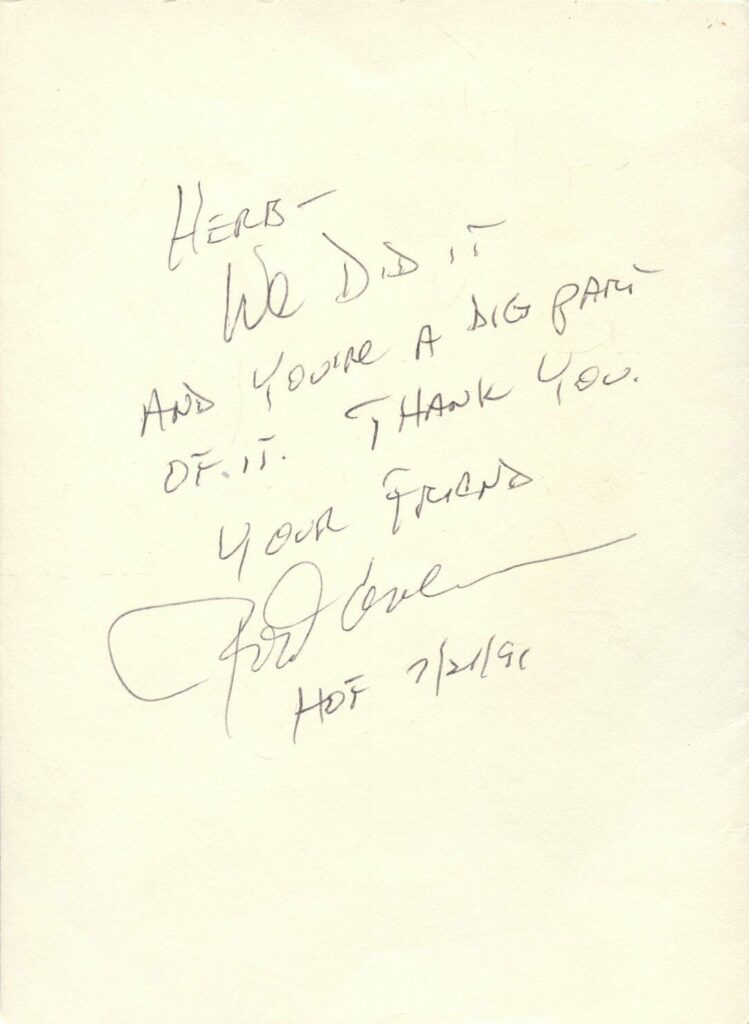 HERB-
We DiD iT
AND YOU'Re A BIG PART
OF. iT. THANK YOU.
YOUR FRIEND
Rod Carew
HOF 7/21/91